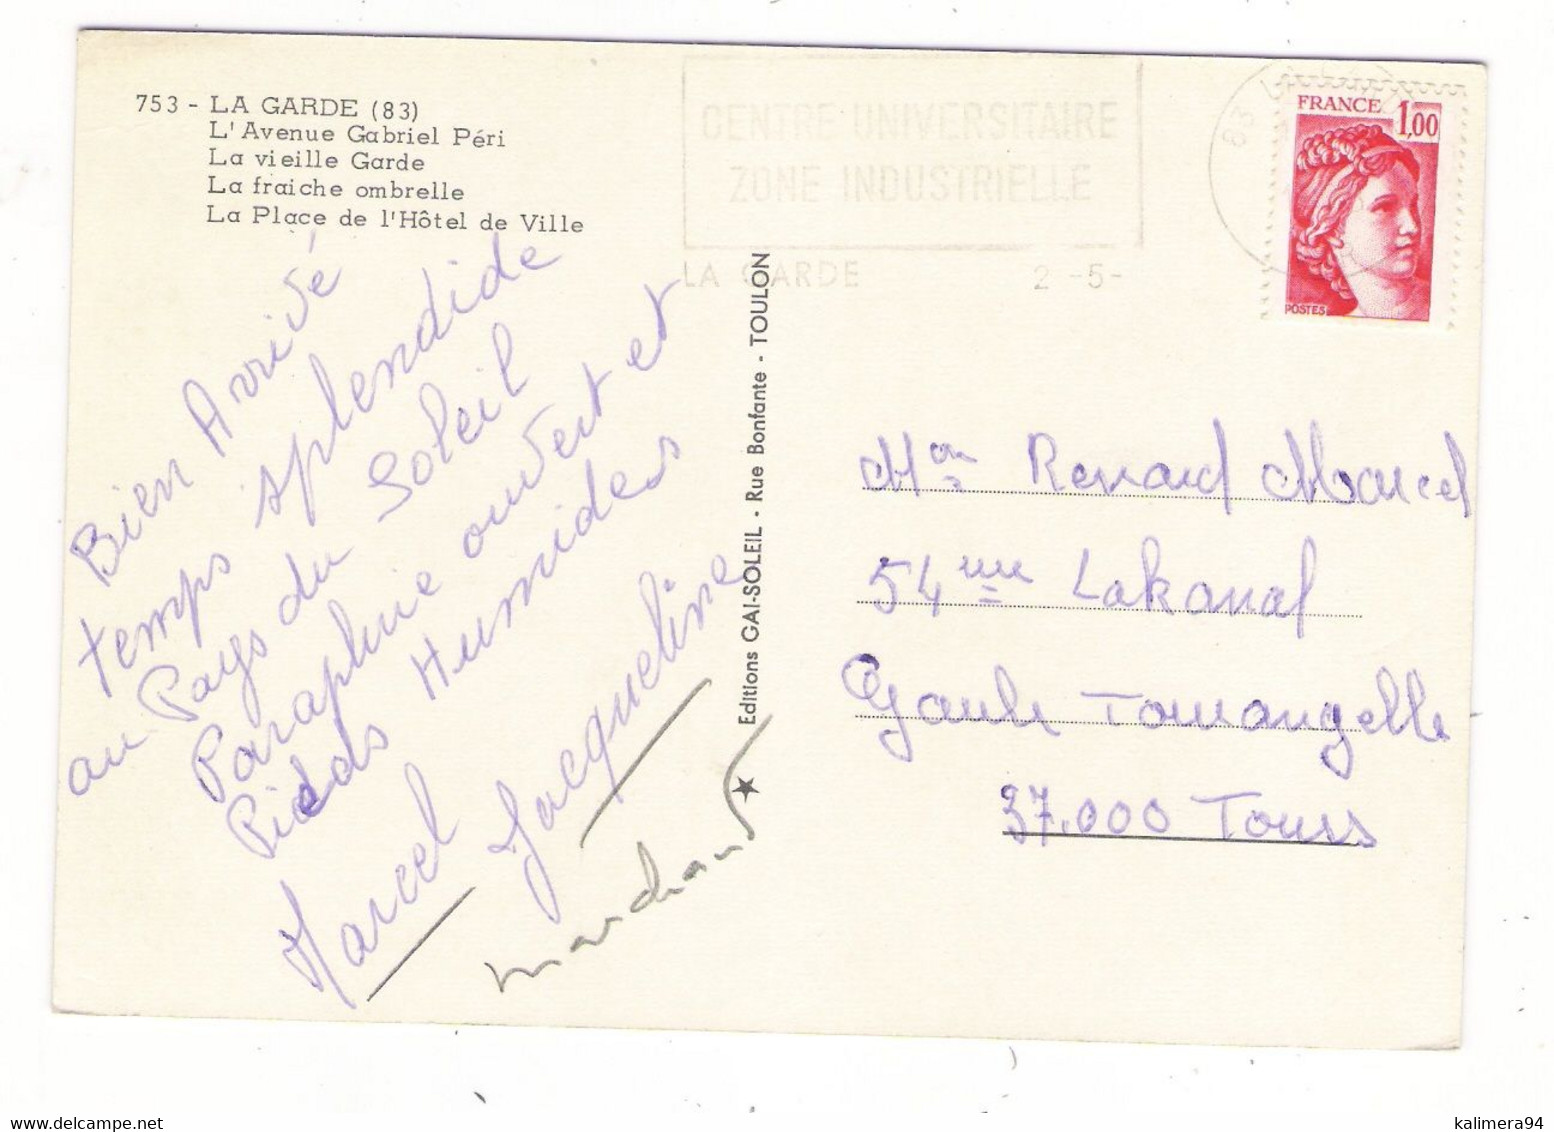 753 - LA GARDE (83)
L'Avenue Gabriel Péri
La vieille Garde
La fraiche ombrelle
La Place de l'Hôtel de Ville
CENTRE UNIVERSITAIRE
ZONE INDUSTRIELLE
LA GARDE 2 -5-
83 L
FRANCE 1,00
POSTES
Bien Arrivé
temps splendide
au Pays du Soleil
Paraphuie ouvert et
Pieds Humides
Marcel Jacqueline
marchand
Editions GAI-SOLEIL - Rue Bonfante - TOULON
Renard Marcel
54 Lakanal
Tourangelle
37.000 Tours
kalimera94